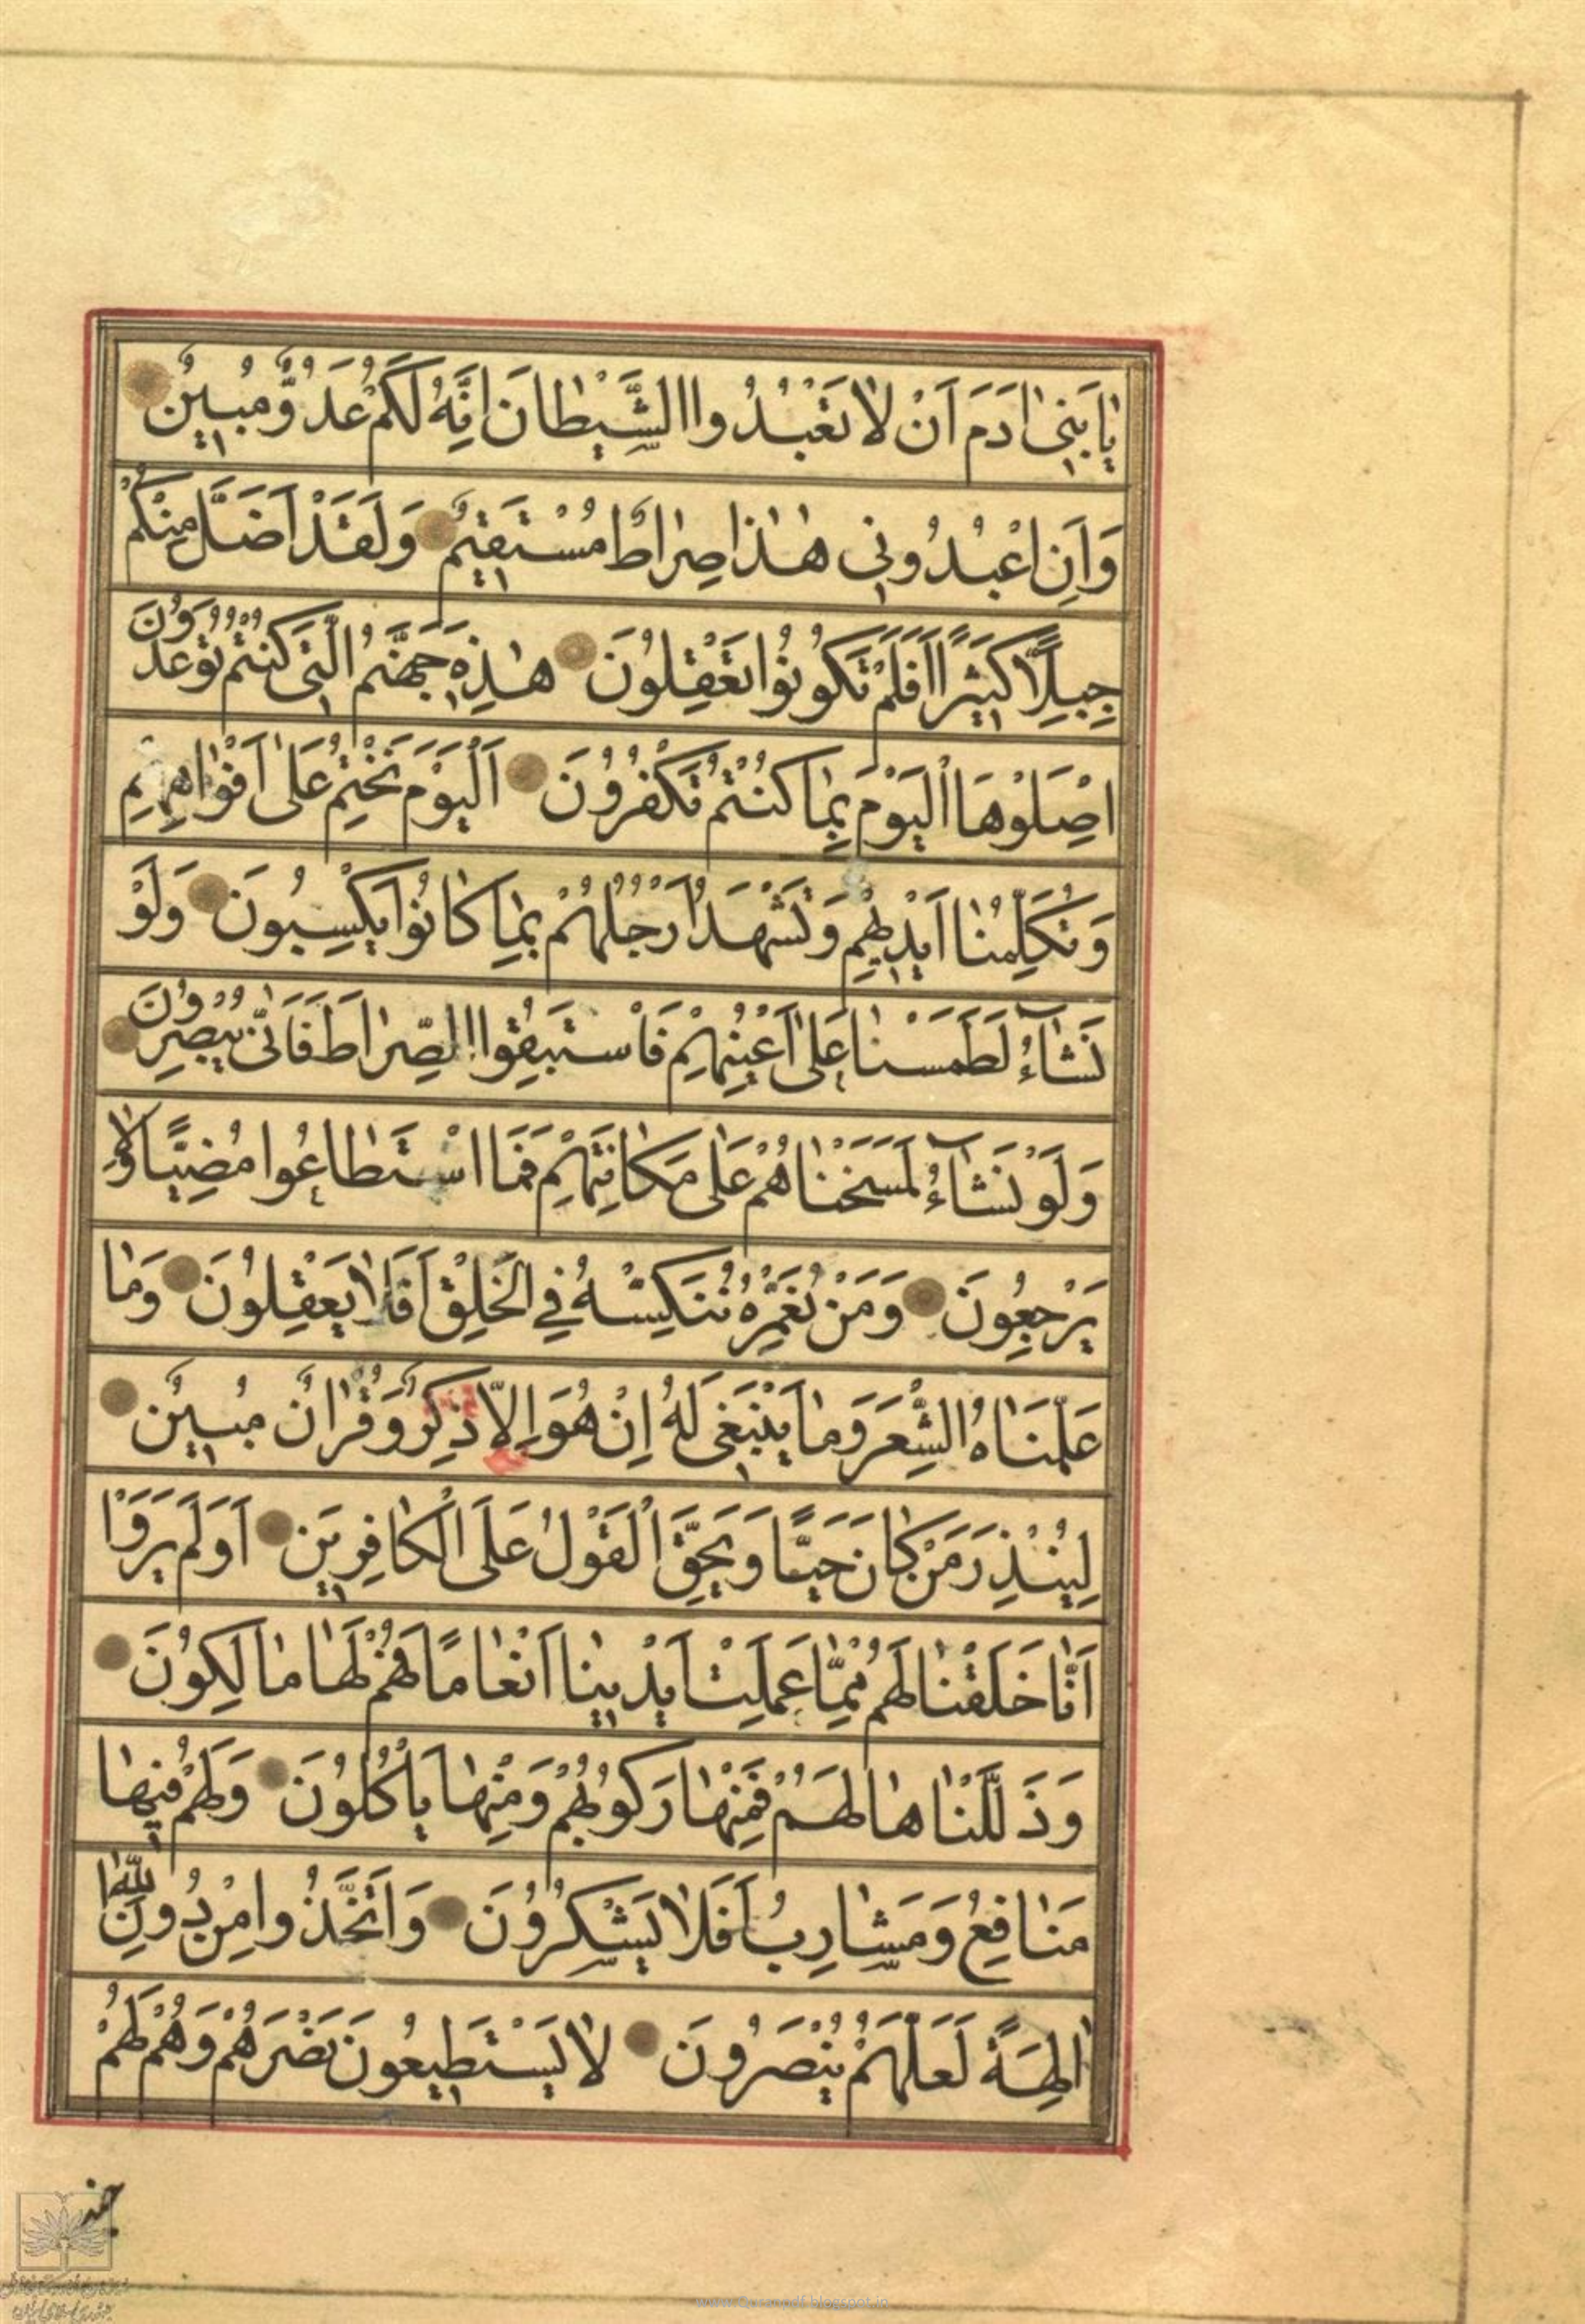 يٰا بَنىٖ اٰدَمَ اَنْ لاٰ تَعْبُدُوا الشَّيْطٰانَ اِنَّهُ لَكُمْ عَدُوٌّ مُبينٌ
وَاَنِ اعْبُدُونىٖ هٰذٰا صِرٰاطٌ مُسْتَقيٖمٌ وَلَقَدْ اَضَلَّ مِنْكُمْ
جِبِلاًّ كَثيٖرًا اَفَلَمْ تَكُونُوا تَعْقِلُونَ هٰذِهٖ جَهَنَّمُ الَّتىٖ كُنْتُمْ تُوعَدُونَ
اِصْلَوْهَا الْيَوْمَ بِمٰا كُنْتُمْ تَكْفُرُونَ اَلْيَوْمَ نَخْتِمُ عَلىٰ اَفْوٰاهِهِمْ
وَتُكَلِّمُنٰا اَيْديٖهِمْ وَتَشْهَدُ اَرْجُلُهُمْ بِمٰا كٰانُوا يَكْسِبُونَ وَلَوْ
نَشٰآءُ لَطَمَسْنٰا عَلىٰ اَعْيُنِهِمْ فَاسْتَبَقُوا الصِّرٰاطَ فَاَنّىٰ يُبْصِرُونَ
وَلَوْ نَشٰآءُ لَمَسَخْنٰاهُمْ عَلىٰ مَكٰانَتِهِمْ فَمَا اسْتَطٰاعُوا مُضِيًّا وَلاٰ
يَرْجِعُونَ وَمَنْ نُعَمِّرْهُ نُنَكِّسْهُ فِي الْخَلْقِ اَفَلاٰ يَعْقِلُونَ وَمٰا
عَلَّمْنٰاهُ الشِّعْرَ وَمٰا يَنْبَغىٖ لَهُ اِنْ هُوَ اِلاّٰ ذِكْرٌ وَقُرْاٰنٌ مُبيٖنٌ
لِيُنْذِرَ مَنْ كٰانَ حَيًّا وَيَحِقَّ الْقَوْلُ عَلَى الْكٰافِريٖنَ اَوَلَمْ يَرَوْا
اَنّٰا خَلَقْنٰا لَهُمْ مِمّٰا عَمِلَتْ اَيْديٖنٰا اَنْعٰامًا فَهُمْ لَهٰا مٰالِكُونَ
وَذَلَّلْنٰاهٰا لَهُمْ فَمِنْهٰا رَكُوبُهُمْ وَمِنْهٰا يَأْكُلُونَ وَلَهُمْ فيٖهٰا
مَنٰافِعُ وَمَشٰارِبُ اَفَلاٰ يَشْكُرُونَ وَاتَّخَذُوا مِنْ دُونِ اللّٰهِ
اٰلِهَةً لَعَلَّهُمْ يُنْصَرُونَ لاٰ يَسْتَطيٖعُونَ نَصْرَهُمْ وَهُمْ لَهُمْ
جند
www.Quranpdf.blogspot.in